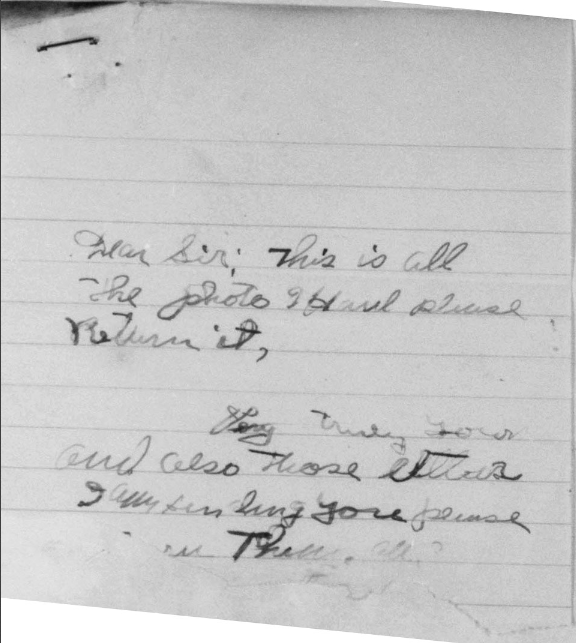 Dear Sir; This is all
the photo I Have please
Return it,
Very truly your
and also those letters
I am sending you please
Them. all